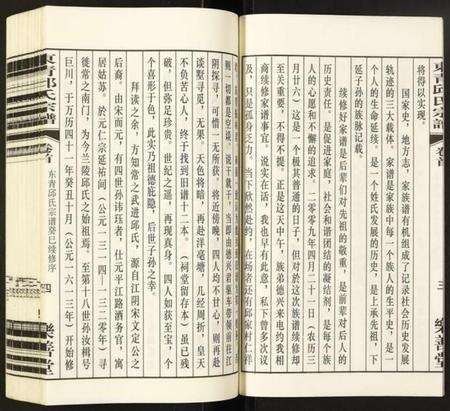 東青邱氏宗譜
卷首
三
樂善堂
将得以实现。
国家史，地方志，家族谱有机组成了记录社会历史发展
轨迹的三大载体，家谱是家族中每一个族人的生平史，是一
个人的生命延续，是一个姓氏发展的历史，是上承先祖，下
延子孙的族脉记载。
续修好家谱是后辈们对先祖的敬重，是前辈对后人的
历史责任，是促进家庭，社会和谐团结的凝结剂，是每个族
人的心愿和不懈的追求，二○○九年四月二十一日（农历三
月廿六）这是一个极其普通的日子，但对於这次族谱续修却
至关重要，不得不提，正是这天中午，族弟德兴来电约我相
商续修家谱事宜，说实在话，我也早有此意，私下曾多次议
及，只是孤身乏力，当下欣然赴约，在场者还有邱家村仁祥
阴探寻，可惜一无所获，将近傍晚，四人均不甘心，则再赴
谈墅寻觅，无果，天色将暗，再赴洋亳塘，几经周折，皇天
不负苦心人，终于找到旧谱十二本。（祠堂留存本）虽已残
破，但弥足珍贵。世纪之谣，再现真身。四人如获至宝，个
个喜形于色，此实乃祖德庇隐，后世子孙之幸。
拜读之余，方知常之武进邱氏，源自江阴宋文定公之
后裔。由宋而元，有四世孙讳珏者，仕元平江路酒务官，寓
居姑苏。於元仁宗延祐间（公元一三一四—一三二○年）寻
徙常之南门，为今兰陵邱氏之始祖焉，至第十八世孙汝楫号
巨川，于万历四十一年癸丑十月（公元一六一三年）开始修
東青邱氏宗譜
卷首
东青邱氏宗谱癸巳续修序
四
樂善堂